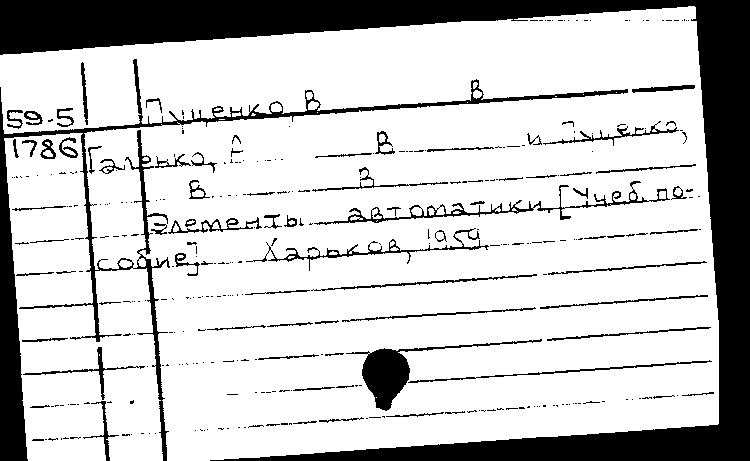 59-5 Пущенко, В В
1786 Галенко, А В и Пущенко,
В В
Элементы автоматики. [Учеб. по-
собие]. Харьков, 1959.